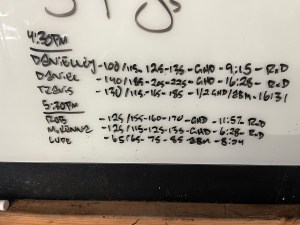 4:30PM
DANIELLEY - 100/115 - 125 - 135 - GHD - 9:15 - RxD
DANIEL - 140/185 - 205 - 225 - GHD - 16:28 - RxD
TRAVIS - 130/115 - 165 - 185 - 1/2 GHD/ABM - 16:31
5:30PM
ROB - 125/155 - 160 - 170 - GHD - 11:57 RxD
McKENNZ - 125/115 - 125 - 135 - GHD - 6:28 - RxD
LUPE - 65/65 - 75 - 85 - ABM - 8:04